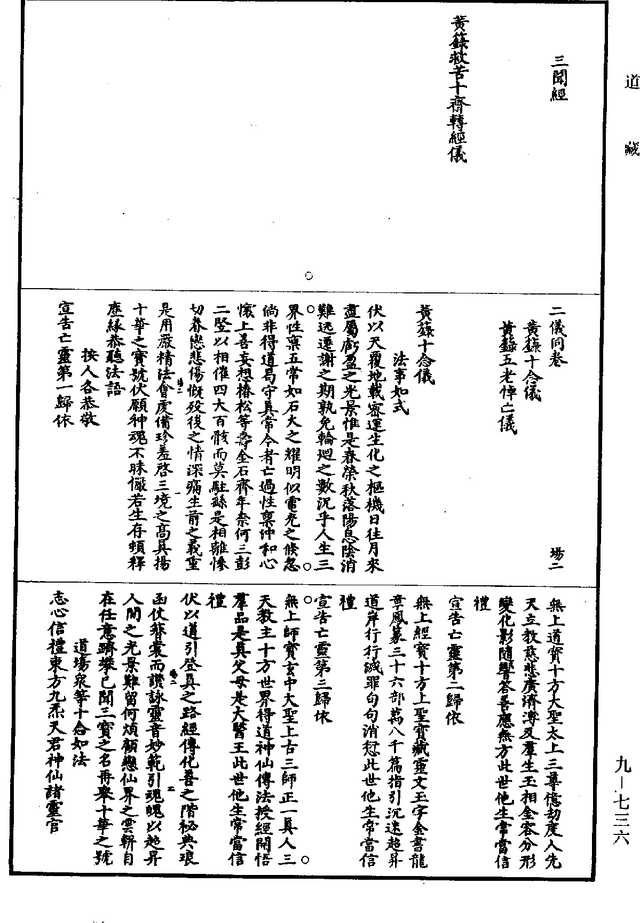 道藏
三聞經
黃籙救苦十齋轉經儀
二儀同卷 塲二
黃籙十念儀
黃籙五老悼亡儀
黃籙十念儀
法事如式
伏以天覆地載密運生化之樞機日往月來
盡屬虧盈之光景惟是春榮秋落陽息陰消
難逃遷謝之期孰免輪迴之數沉乎人生三
界性稟五常如石火之耀明似電光之倏忽
倘非得道曷守真常今者亡過性稟沖和心
懷上善妄想椿松等壽金石齊年奈何三彭
二竪以相催四大百骸而莫駐繇是相離悽
切眷戀悲傷慨歿後之情深痛生前之義重
是用嚴精法會虔備珍羞啓三境之高真揚
十華之寶號伏願神魂不昧儼若生存頓釋
塵緣恭聽法語
按人各恭敬
宣告亡靈第一歸依
無上道寶十方大聖太上三尊億劫度人先
天立教慈悲廣濟溥及羣生玉相金容分形
變化影隨響答善應無方此世他生常當信
禮
宣告亡靈第二歸依
無上經寶十方上聖寶藏靈文玉字金書龍
章鳳篆三十六部萬八千篇指引沉迷超昇
道岸行行滅罪句句消愆此世他生常當信
禮
宣告亡靈第三歸依
無上師寶玄中大聖上古三師正一真人三
天教主十方世界得道神仙傳法授經開悟
羣品是真父母是大醫王此世他生常當信
禮
伏以道引登真之路經傳化善之階秘典琅
函仗華裳而讚詠靈音妙範引魂魄以超昇
人間之光景難留何煩顧戀仙界之雲軿自
在任意躋攀已聞三寶之名再舉十華之號
道場衆等十念如法
志心信禮東方九炁天君神仙諸靈官
九—七三六